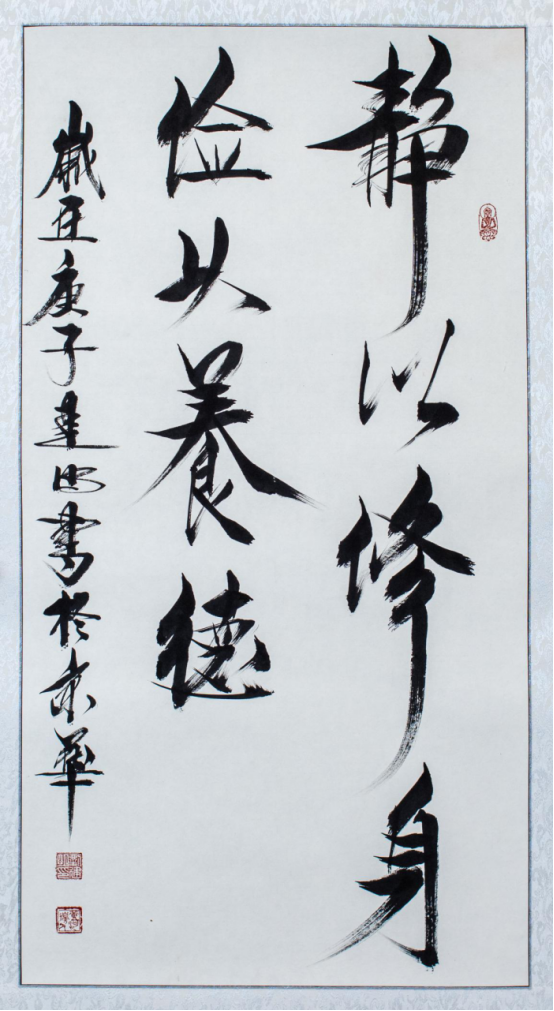 静以修身
俭以養德
歲在庚子建忠書於京華